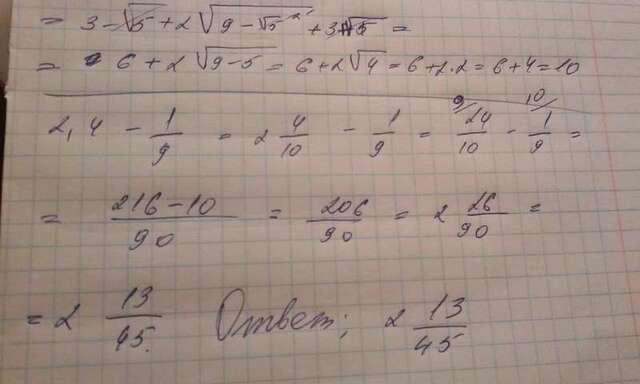 = 3 - √5 + 2 √(9 - √5²) + 3 + √5 =
= 6 + 2 √(9-5) = 6 + 2 √4 = 6 + 2·2 = 6 + 4 = 10
2,4 - 1/9 = 2 4/10 - 1/9 = 9/ 24/10 - 10/ 1/9 =
= (216-10)/90 = 206/90 = 2 26/90 =
= 2 13/45. Ответ; 2 13/45